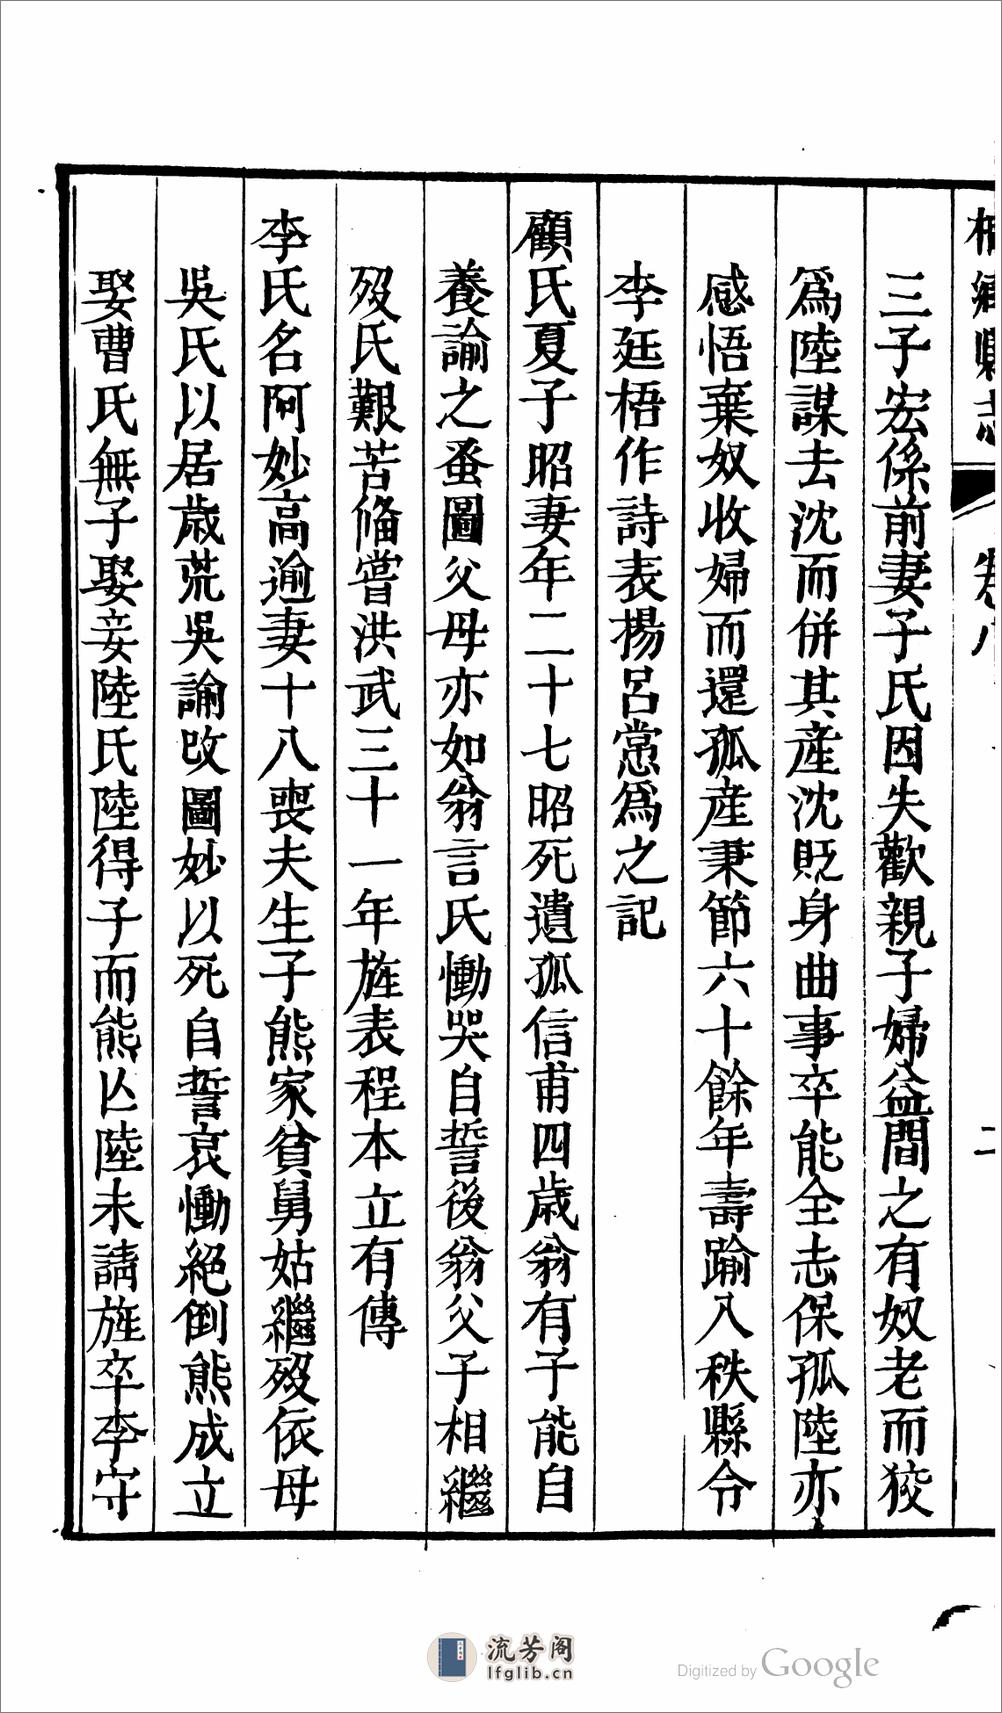 桐鄉縣志 卷八 二
三子宏係前妻子氏因失歡親子婦益間之有奴老而狡
爲陸謀去沈而併其產沈貶身曲事卒能全志保孤陸亦
感悟棄奴收婦而還孤產秉節六十餘年壽踰八秩縣令
李廷梧作詩表揚呂𢡟爲之記
顧氏夏子昭妻年二十七昭死遺孤信甫四歲翁有子能自
養諭之蚤圖父母亦如翁言氏慟哭自誓後翁父子相繼
歿氏艱苦備嘗洪武三十一年旌表程本立有傳
李氏名阿妙高逾妻十八喪夫生子熊家貧舅姑繼歿依母
吳氏以居歲荒吳諭改圖妙以死自誓哀慟絕倒熊成立
娶曹氏無子娶妾陸氏陸得子而熊亾陸未請旌卒李守